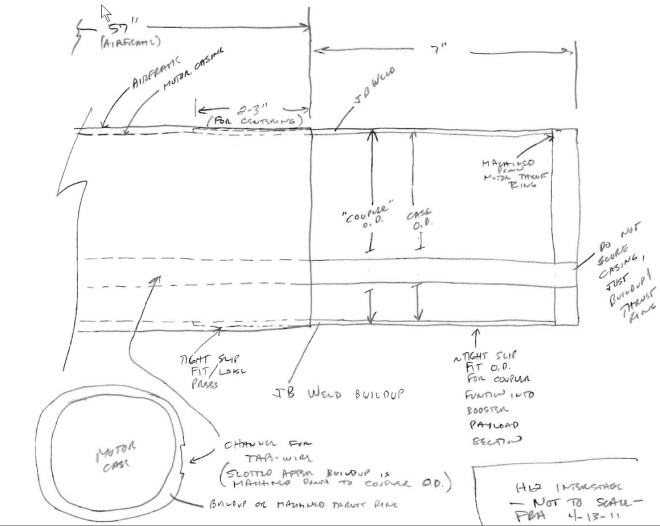 57"
(AIRFRAME)
7"
AIRFRAME
MOTOR CASING
2-3"
(FOR CENTERING)
JB WELD
MACHINED
DOWN
MOTOR THRUST
RING
"COUPLER"
O.D.
CASE
O.D.
DO NOT
SCORE
CASING,
JUST
BUILDUP/
THRUST
RING
TIGHT SLIP
FIT/LOOSE
PRESS
JB WELD BUILDUP
TIGHT SLIP
FIT O.D.
FOR COUPLER
FUNCTION INTO
BOOSTER
PAYLOAD
SECTION
MOTOR
CASE
CHANNEL FOR
TAPE-WIRE
(SLOTTED AFTER BUILDUP IS
MACHINED DOWN TO COUPLER O.D.)
BUILDUP OR MACHINED THRUST RING
INTERSTAGE
- NOT TO SCALE -
4-13-11